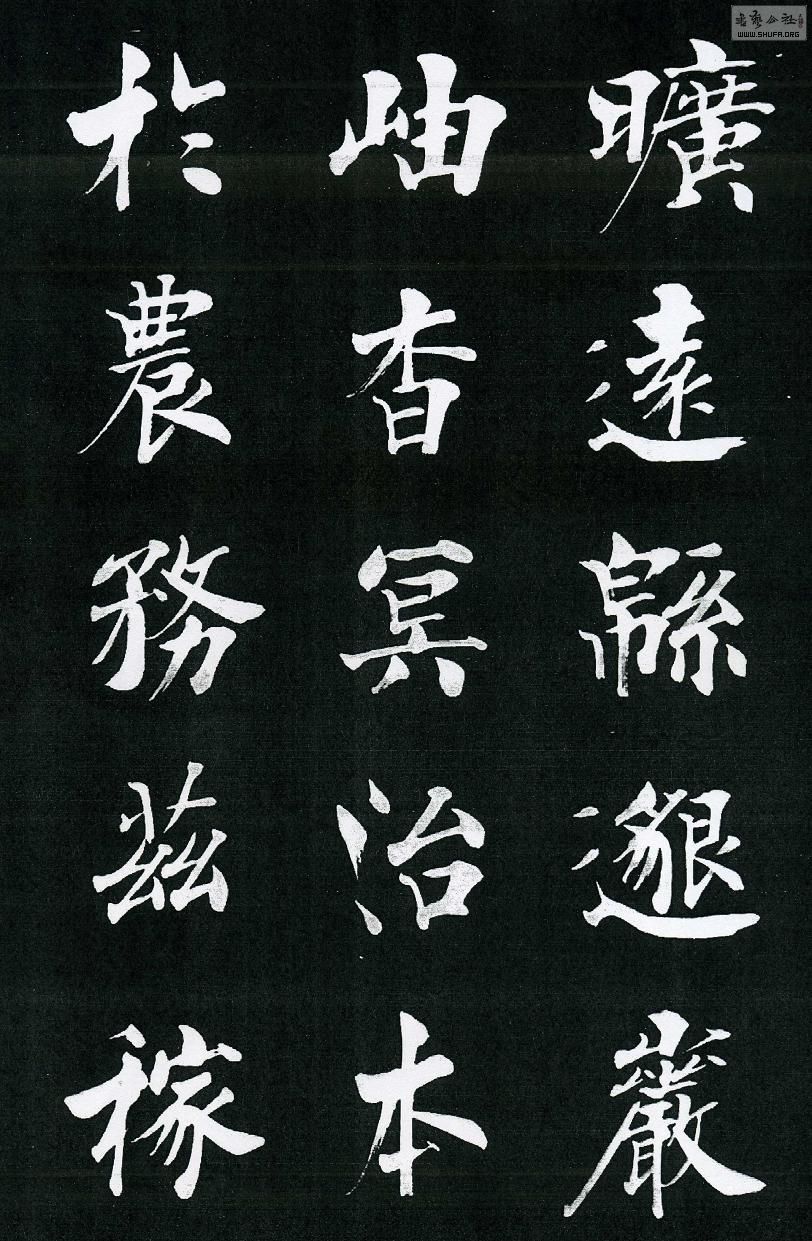 曠遠緜邈巖
岫杳冥治本
於農務茲稼
書藝公社
WWW.SHUFA.ORG